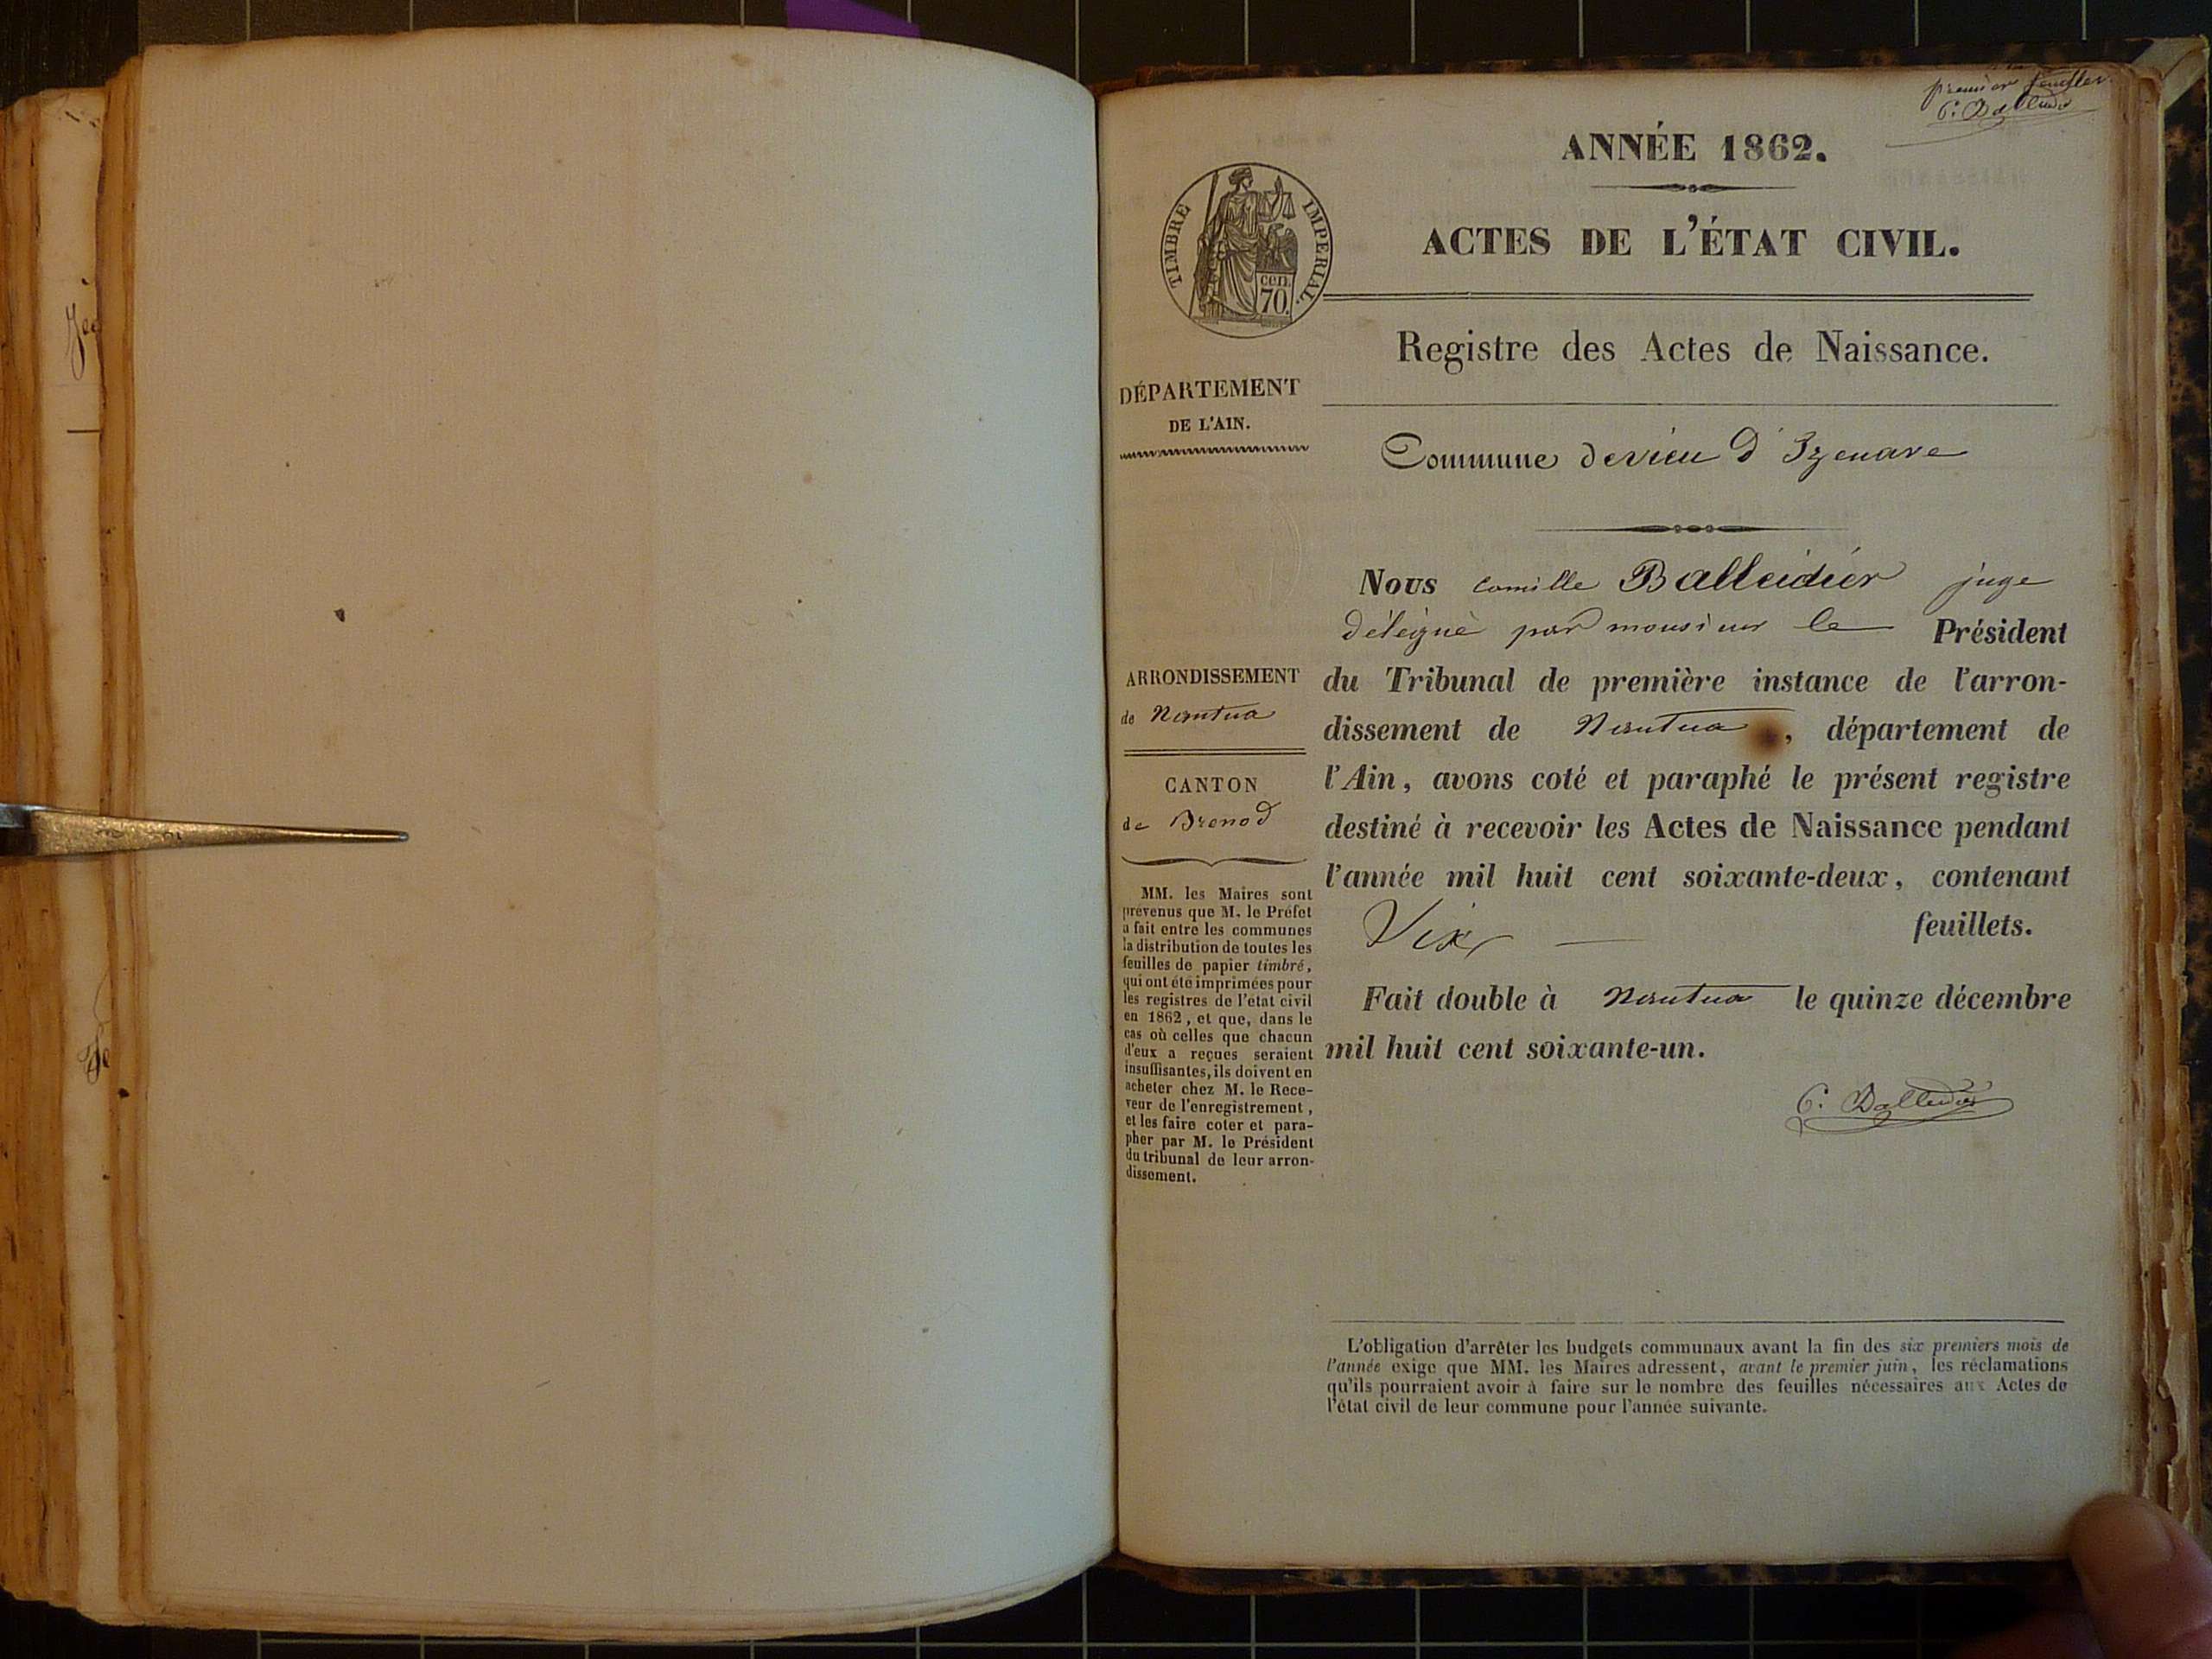 premier feuillet
C. Balleidier
ANNÉE 1862.
ACTES DE L'ÉTAT CIVIL.
TIMBRE IMPERIAL.
cen.
70.
Registre des Actes de Naissance.
DÉPARTEMENT
DE L'AIN.
Commune de vieu d'Izenave
Nous Camille Balleidier juge
délégué par monsieur le Président
du Tribunal de première instance de l'arron-
dissement de Nantua, département de
l'Ain, avons coté et paraphé le présent registre
destiné à recevoir les Actes de Naissance pendant
l'année mil huit cent soixante-deux, contenant
feuillets.
Fait double à Nantua le quinze décembre
mil huit cent soixante-un.
C. Balleidier
ARRONDISSEMENT
de Nantua
CANTON
de Brenod
MM. les Maires sont
prévenus que M. le Préfet
a fait entre les communes
la distribution de toutes les
feuilles de papier timbré,
qui ont été imprimées pour
les registres de l'état civil
en 1862, et que, dans le
cas où celles que chacun
d'eux a reçues seraient
insuffisantes, ils doivent en
acheter chez M. le Rece-
veur de l'enregistrement,
et les faire coter et para-
pher par M. le Président
du tribunal de leur arron-
dissement.
L'obligation d'arrêter les budgets communaux avant la fin des six premiers mois de
l'année exige que MM. les Maires adressent, avant le premier juin, les réclamations
qu'ils pourraient avoir à faire sur le nombre des feuilles nécessaires aux Actes de
l'état civil de leur commune pour l'année suivante.